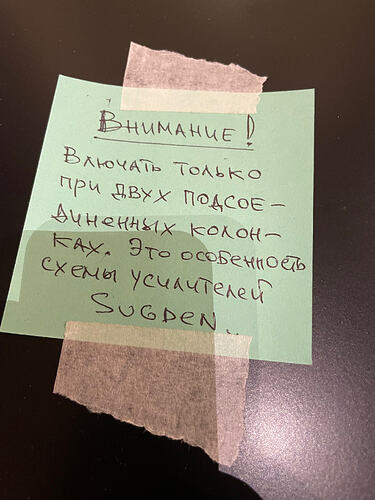 Внимание!
Влючать только
при двух подсое-
диненных колон-
ках. Это особенность
схемы усилителей
SUGDEN..